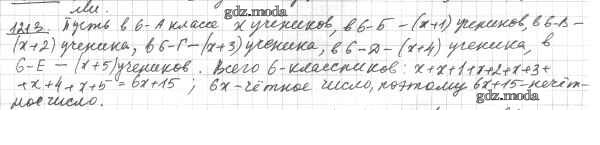 ли.
gdz.moda
1213. Пусть в 6-А классе x учеников, в 6-Б - (x+1) учеников, в 6-В -
(x+2) ученика, в 6-Г - (x+3) ученика, в 6-Д - (x+4) ученика, в
6-Е - (x+5) учеников. Всего 6-классников: x+x+1+x+2+x+3+
+x+4+x+5 = 6x+15; 6x - чётное число, поэтому 6x+15 - нечёт-
gdz.moda
ное число.